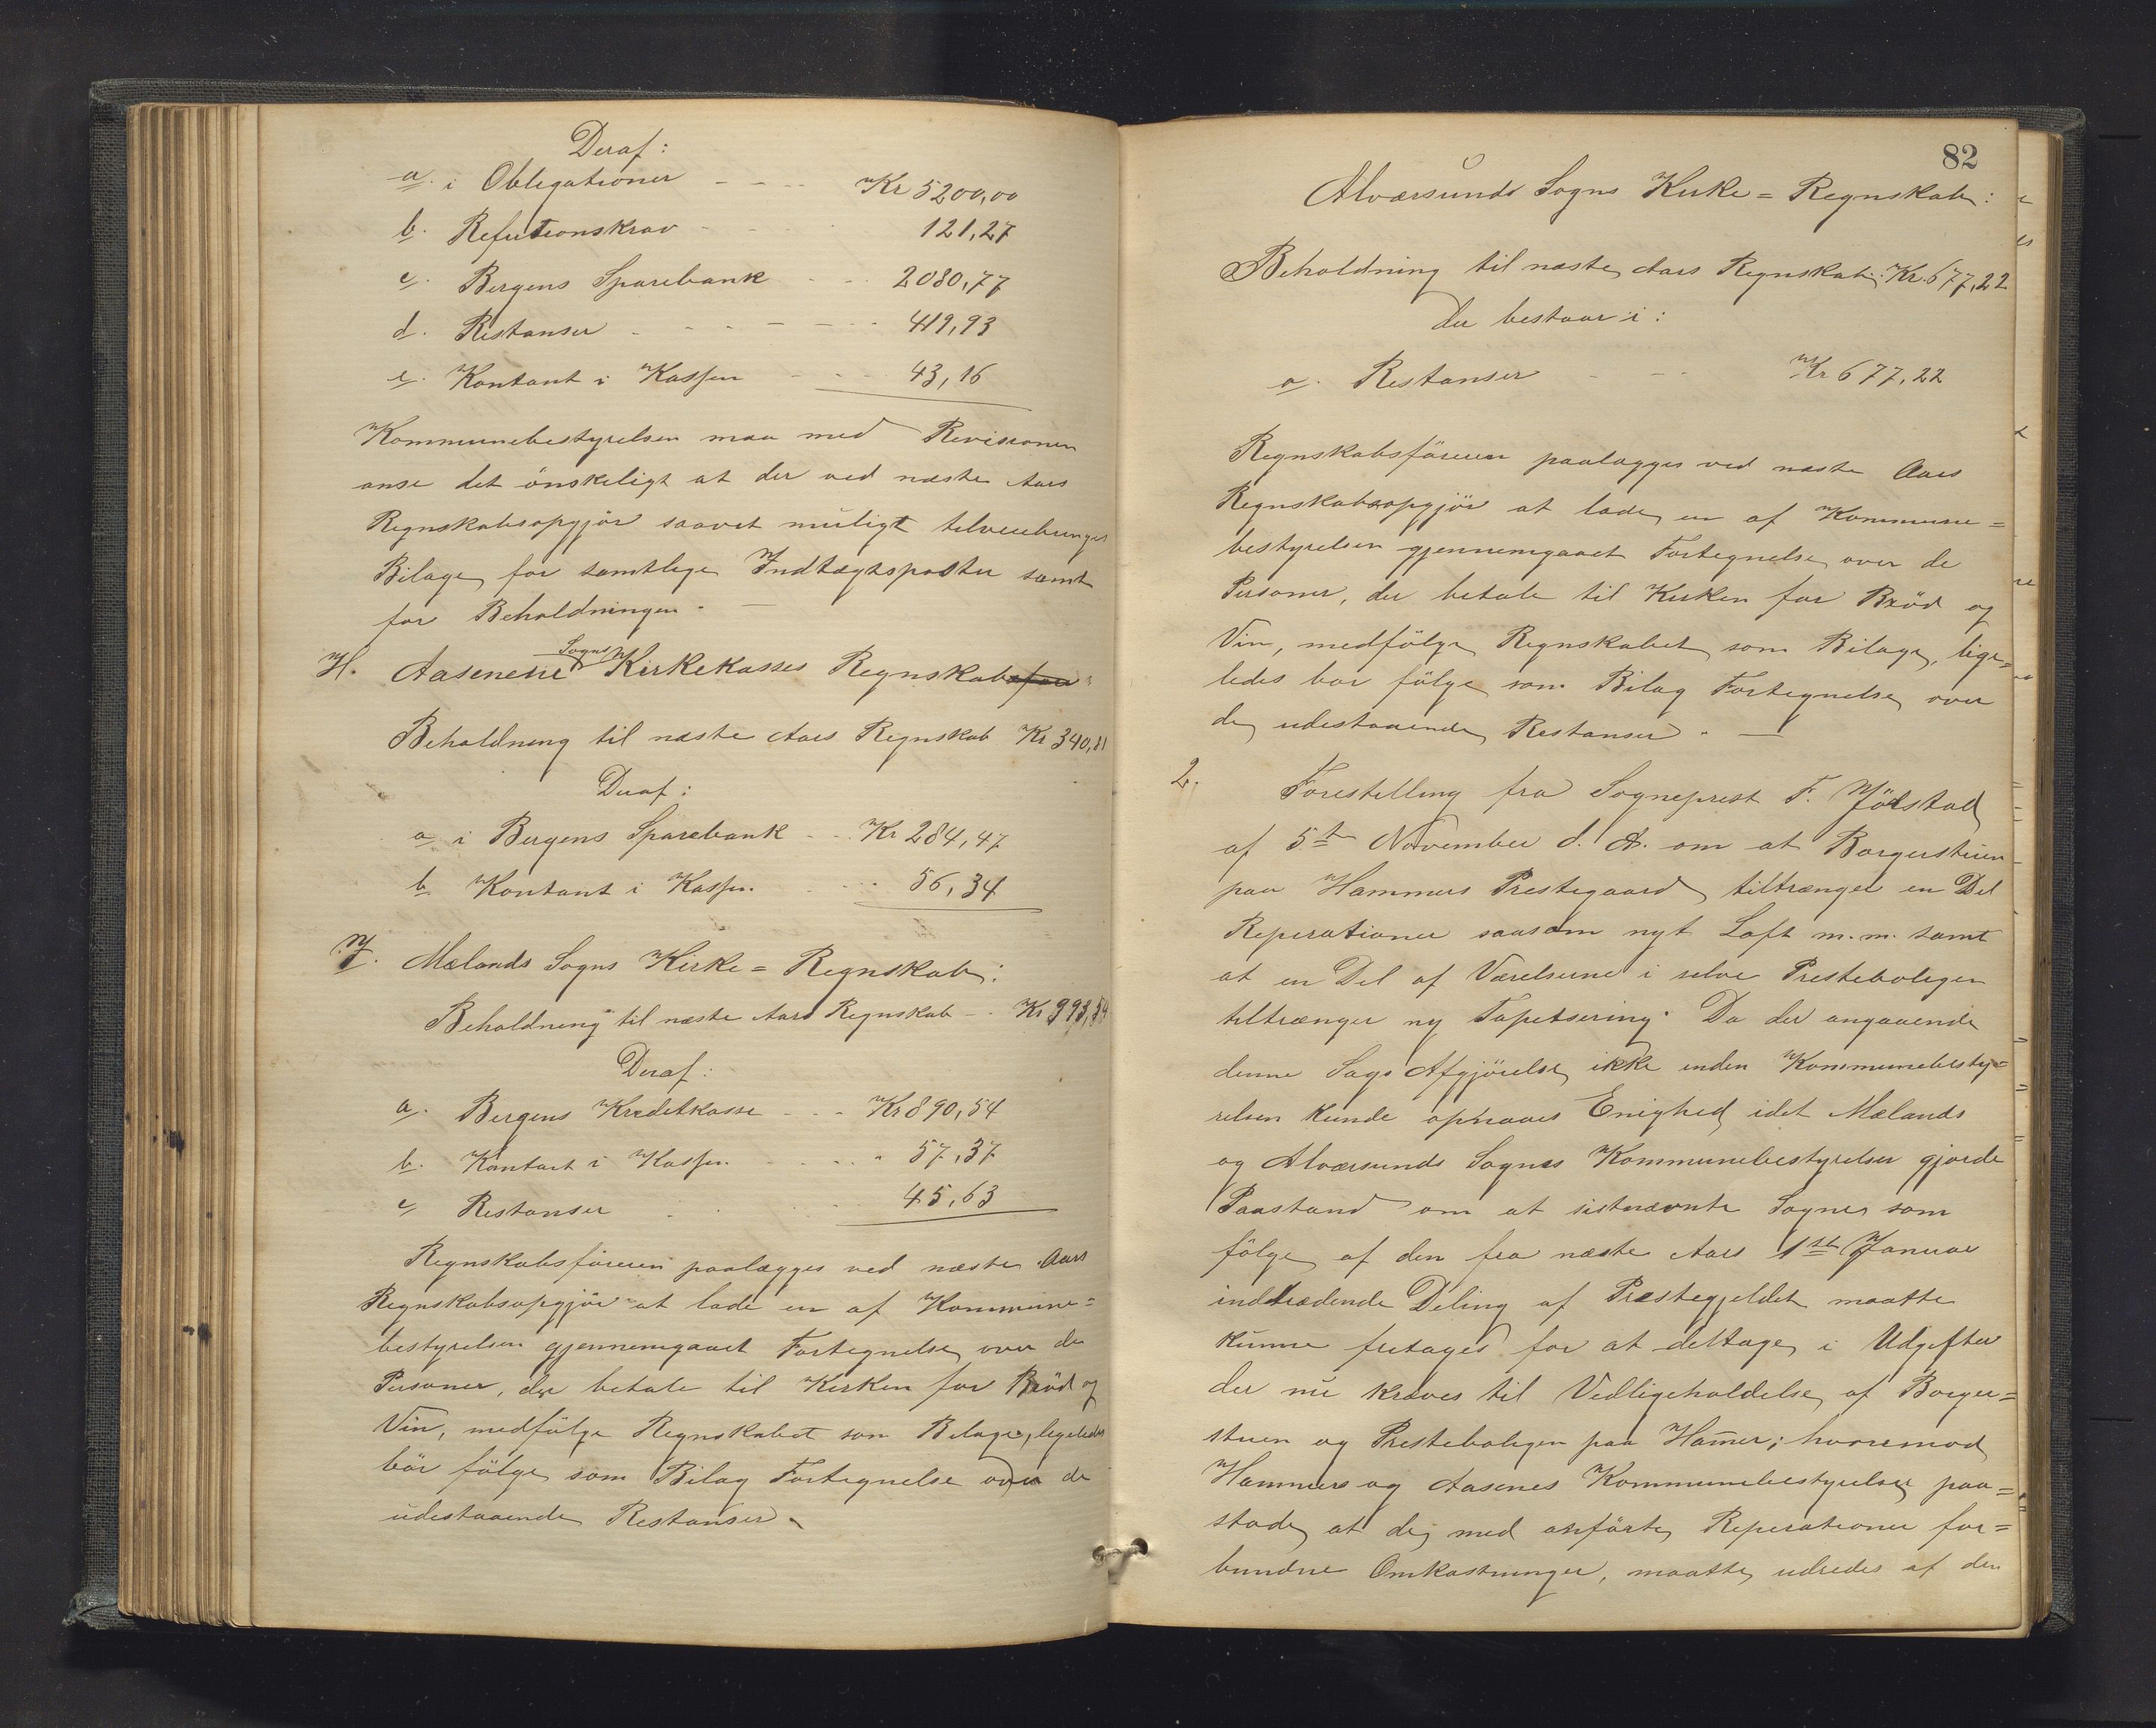 Deraf:
a. i Obligationer - - - Kr 5200,00
b. Refutionskrav - - 121,27
c. Bergens Sparebank - - 2080,77
d. Restanser - - - - - 419,93
e. Kontant i Kassen - - - 43,16
Kommunebestyrelsen maa med Revisionen
anse det önskeligt at der ved næste Aars
Regnskabsopgjör saavet muligt tilveiebringes
Bilage for samtlige Indtægtsposter samt
for Beholdningen. —
H. Aasenene Sogns Kirkekasses Regnskab:
Beholdning til næste Aars Regnskab Kr 340,81
Deraf:
a i Bergens Sparebank - - Kr 284,47
b Kontant i Kassen. - - - 56,34
J. Mælands Sogns Kirke= Regnskab:
Beholdning til næste Aars Regnskab - - Kr 993,54
Deraf:
a. Bergens Kreditkasse - - - Kr 890,54
b. Kontant i Kassen. - - - - " 57,37
c Restanser - - - 45,63
Regnskabsföreren paalægges ved næste Aars
Regnskabsopgjör at lade en af Kommune=
bestyrelsen gjennemgaaet Fortegnelse over de
Personer, der betale til Kirken for Bröd og
Vin, medfölge Regnskabet som Bilage, ligeledes
bör fölge som Bilag Fortegnelse over de
udestaaende Restanser.
82
Alværsunds Sogns Kirke= Regnskab:
Beholdning til næste Aars Regnskab: Kr. 677,22
der bestaar i:
a. Restanser - - - Kr 677,22
Regnskabsföreren paalægges ved næste Aars
Regnskabsopgjör at lade en af Kommune=
bestyrelsen gjennemgaaet Fortegnelse over de
Personer, der betale til Kirken for Bröd og
Vin, medfölge Regnskabet som Bilage, lige=
ledes bör fölge som Bilag Fortegnelse over
de udestaaende Restanser. —
2. Forestilling fra Sogneprest F. Jörstad
af 5te November d. A. om at Borgerstuen
paa Hammers Prestegaard tiltrænger en Del
Reperationer saasom nyt Loft m.m. samt
at en Del af Værelserne i selve Presteboligen
tiltrænger ny Tapetsering. Da der angaaende
denne Sags Afgjörelse ikke inden Kommunebesty=
relsen kunde opnaaes Enighed, idet Mælands
og Alværsunds Sognes Kommunebestyrelser gjorde
Paastand om at sistnævnte Sogner som
fölge af den fra næste Aars 1ste Januar
indtrædende Deling af Præstegjeldet maatte
kunne fritages for at deltage i Udgifter
der nu kræves til Vedligeholdelse af Borger=
stuen og Presteboligen paa Ham̄er; hvorimod
Hammers og Aasenes Kommunebestyrelser paa=
stode, at de, med anförte, Reperationer for=
bundne Omkostninger, maatte udredes af den